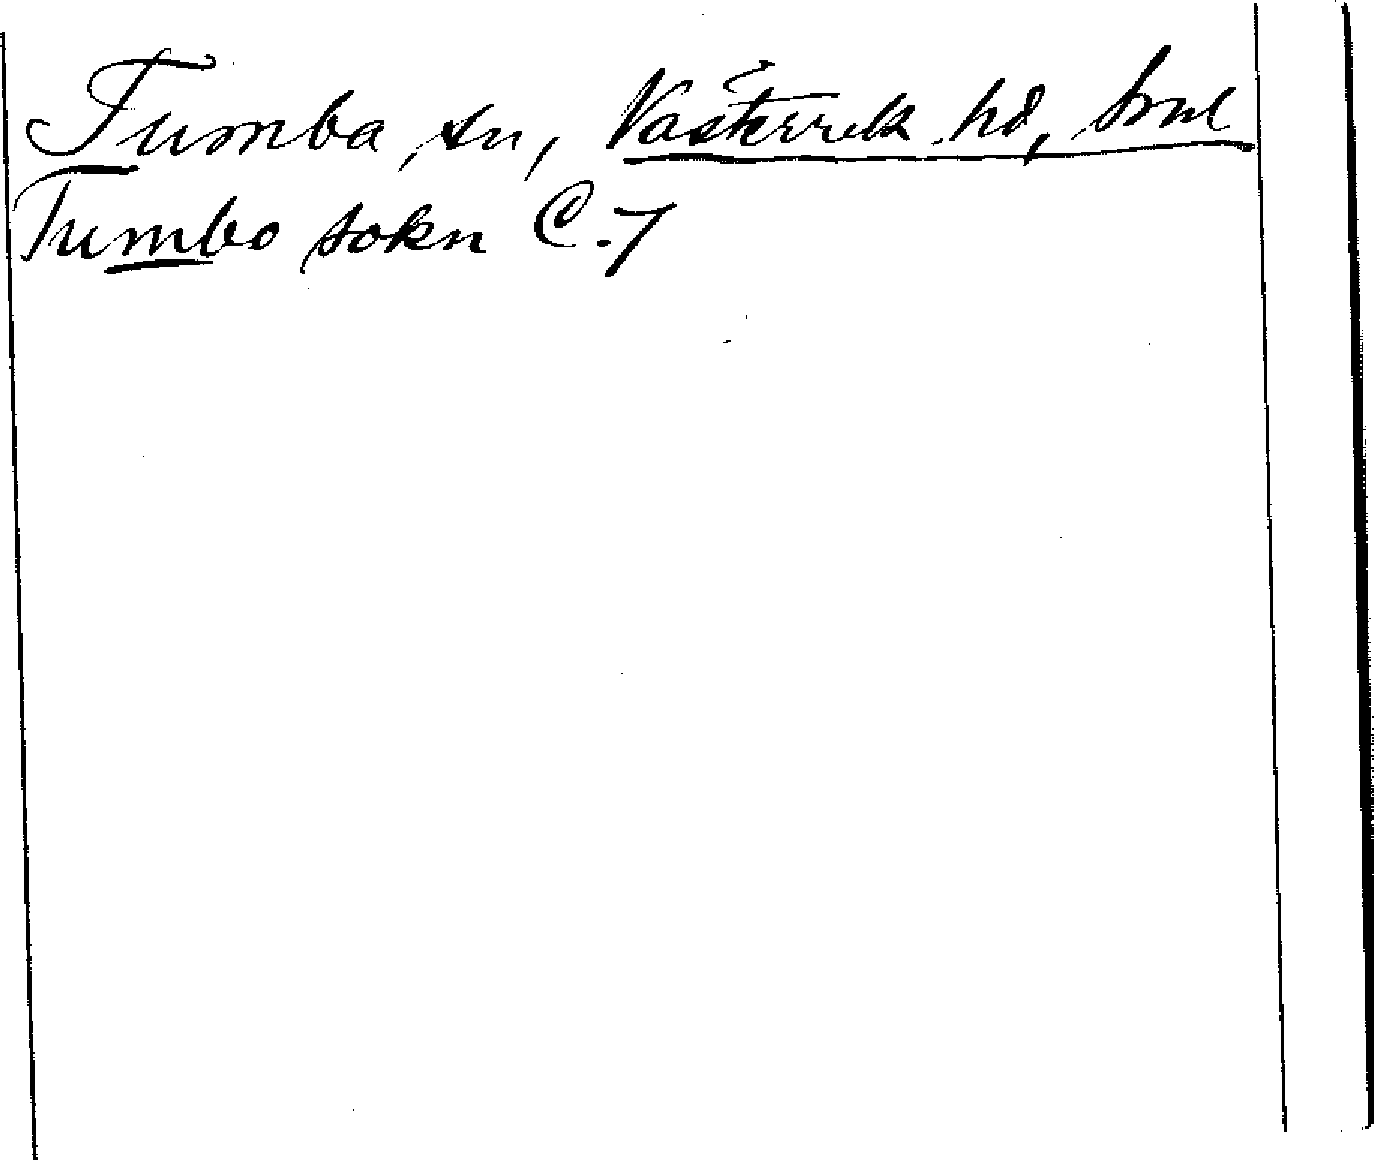 Tumba, sn, Västerrek hd, Sml
Tumbo sokn C.7